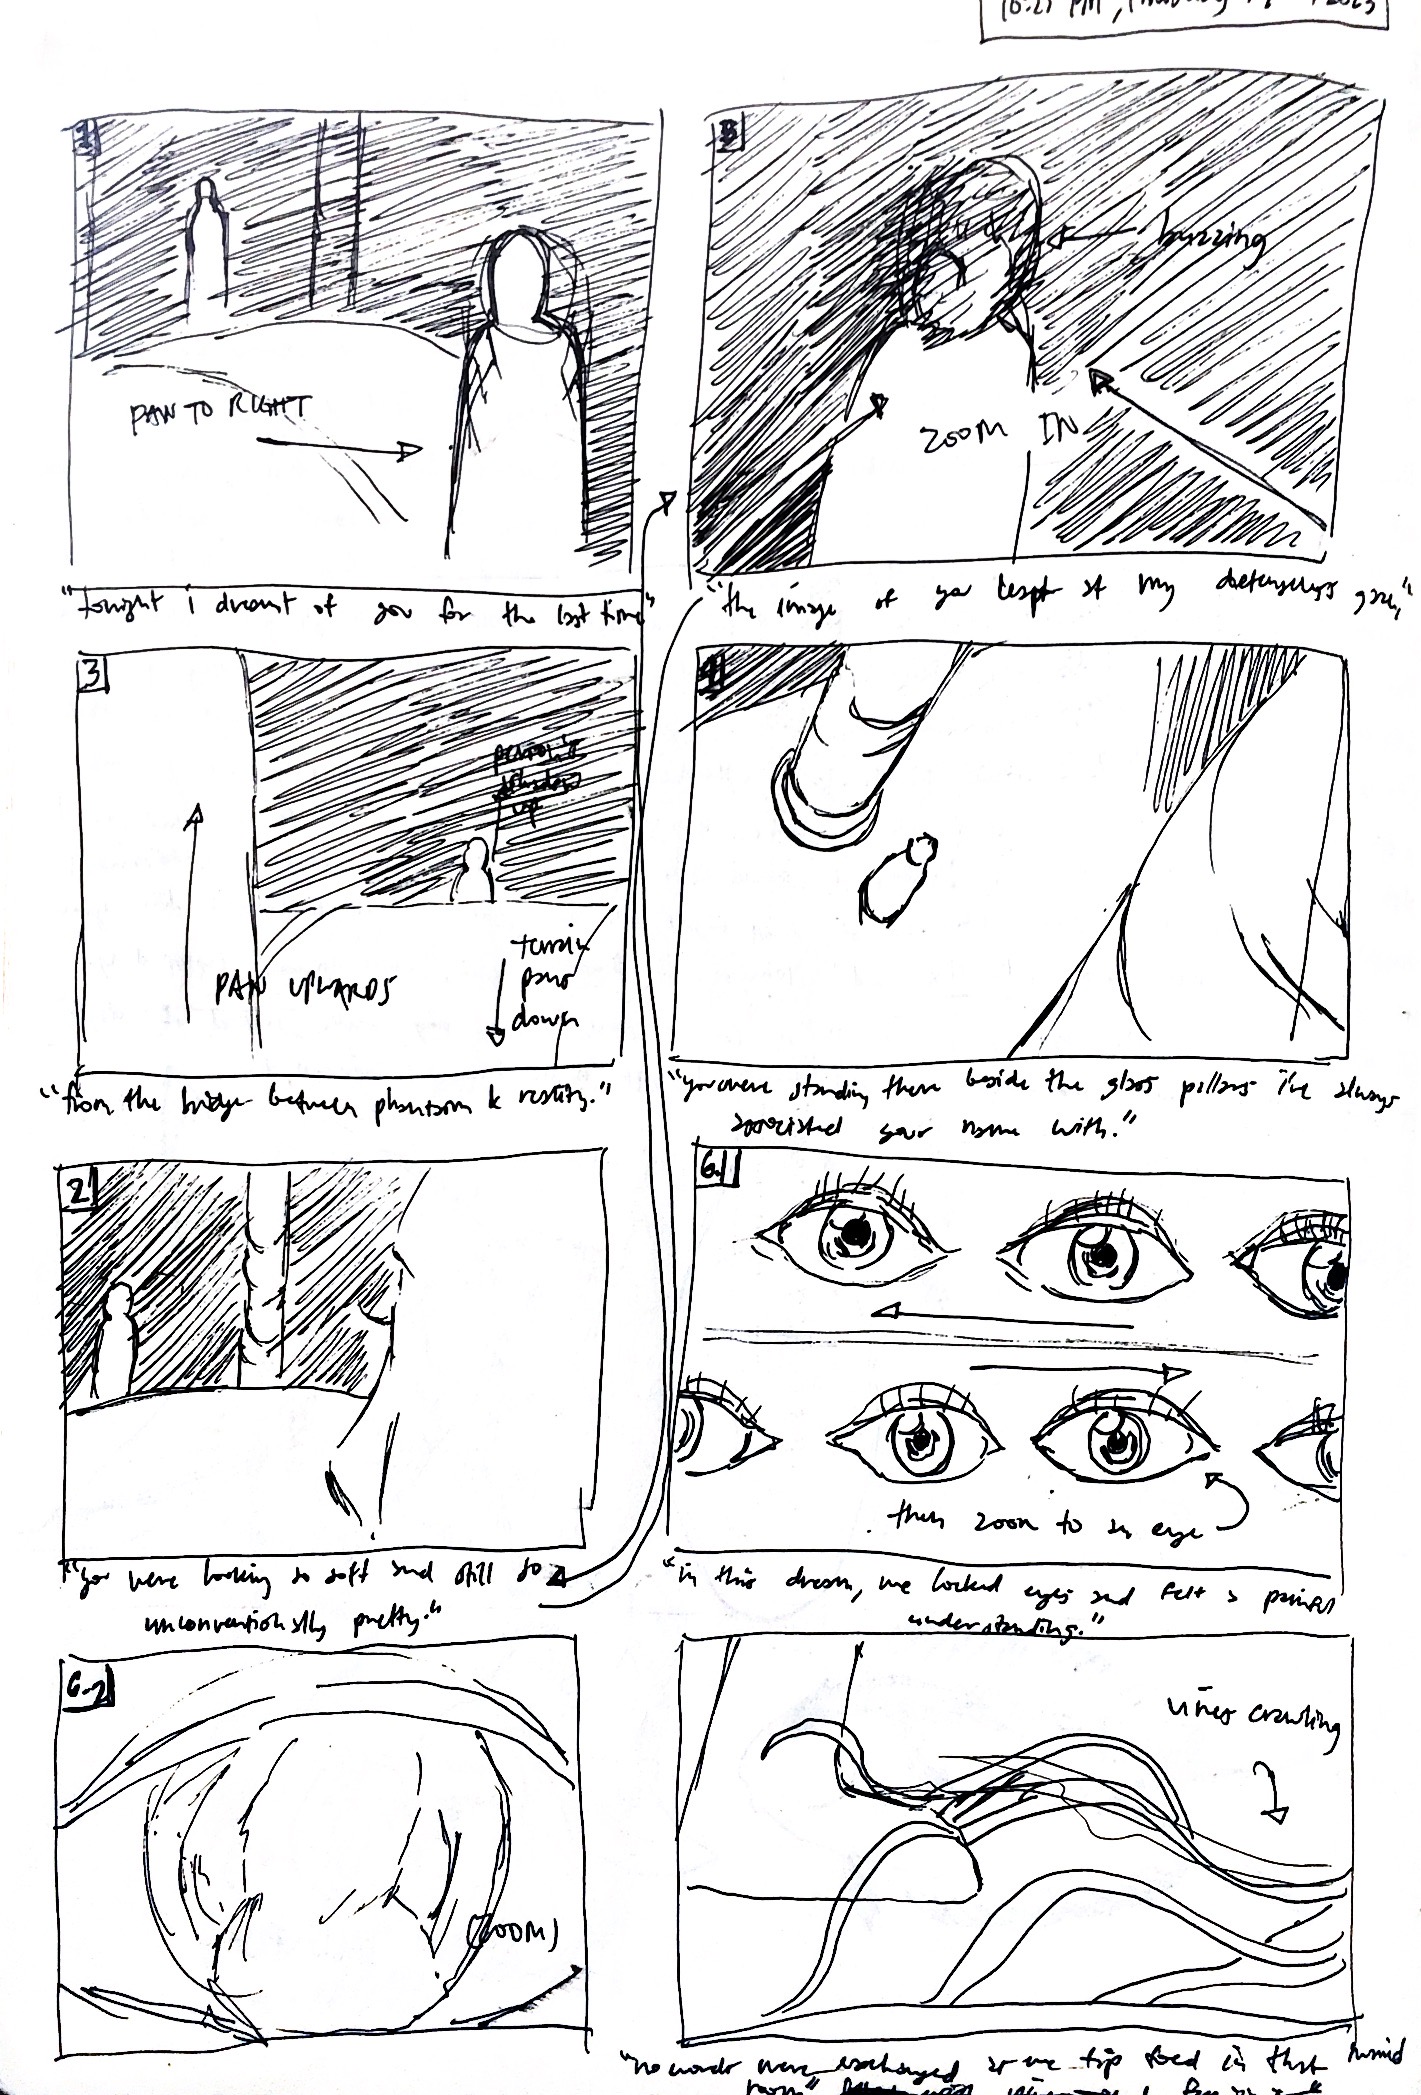 10:27 PM, 2023
1
PAN TO RIGHT
"tonight i dreamt of you for the last time"
buzzing
ZOOM IN
"the image of you leapt at my defenseless gaze,"
3
person's
shadow
up
PAN UPWARDS
terrain
pans
down
"from the bridge between phantom & reality."
4
"you were standing there beside the glass pillars i've always
associated your name with."
2
"you were looking so soft and still so
unconventionally pretty."
6.1
then zoom to an eye
"in this dream, we locked eyes and felt a painful
understanding."
6-2
(ZOOM)
vines crawling
"no words were exchanged as we tip toed in that humid
room"